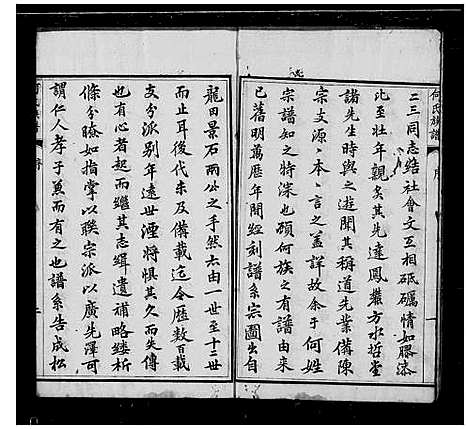 何氏族譜
序
二三同志結社會文互相砥礪情如膠漆
比至壯年觀炙其先達鳳巖方水哲堂
諸先生時與之遊聞其稱道先業備陳
宗支源源本本言之蓋詳故余于何姓
宗譜知之特深也顧何族之有譜由來
已舊明萬曆年間經刻譜系宗圖出自
龍田景石兩公之手然亦由一世至十三世
而止耳後代未及備載迄今歷數百載
支分派別年遠世湮將惧其久而失傳
也有心者起而繼其志緝遺補略縷析
條分瞭如指掌以聯宗派以廣先澤可
謂仁人孝子萬而有之也譜系告成松
序
二